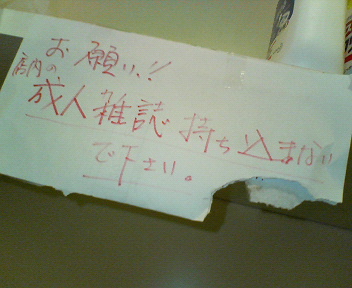 お願い!!
店内の
成人雑誌持ち込まない
で下さい。